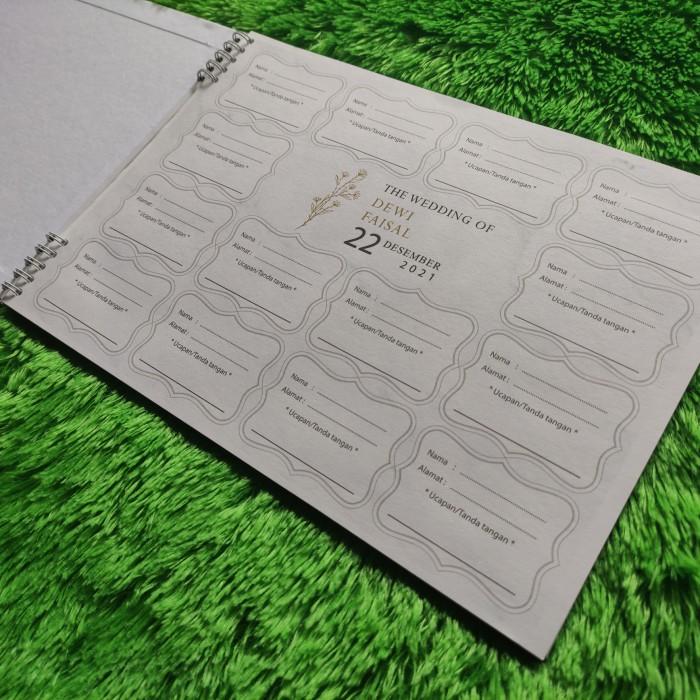 Nama :
Alamat :
* Ucapan/Tanda tangan *
Nama :
Alamat :
* Ucapan/Tanda tangan *
Nama :
Alamat :
* Ucapan/Tanda tangan *
Nama :
Alamat :
* Ucapan/Tanda tangan *
Nama :
Alamat :
* Ucapan/Tanda tangan *
THE WEDDING OF
DEWI
FAISAL
22 DESEMBER
2021
Nama :
Alamat :
* Ucapan/Tanda tangan *
Nama :
Alamat :
* Ucapan/Tanda tangan *
Nama :
Alamat :
* Ucapan/Tanda tangan *
Nama :
Alamat :
* Ucapan/Tanda tangan *
Nama :
Alamat :
* Ucapan/Tanda tangan *
Nama :
Alamat :
* Ucapan/Tanda tangan *
Nama :
Alamat :
* Ucapan/Tanda tangan *
Nama :
Alamat :
* Ucapan/Tanda tangan *
Nama :
Alamat :
* Ucapan/Tanda tangan *